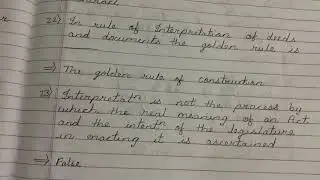 22) In rule of Interpretation of deeds
and documents the golden rule is
⇒ The golden rule of construction
23) Interpretatn is not the process by
which the real meaning of an Act
and the intentn of the legislature
in enacting it is ascertained
⇒ False